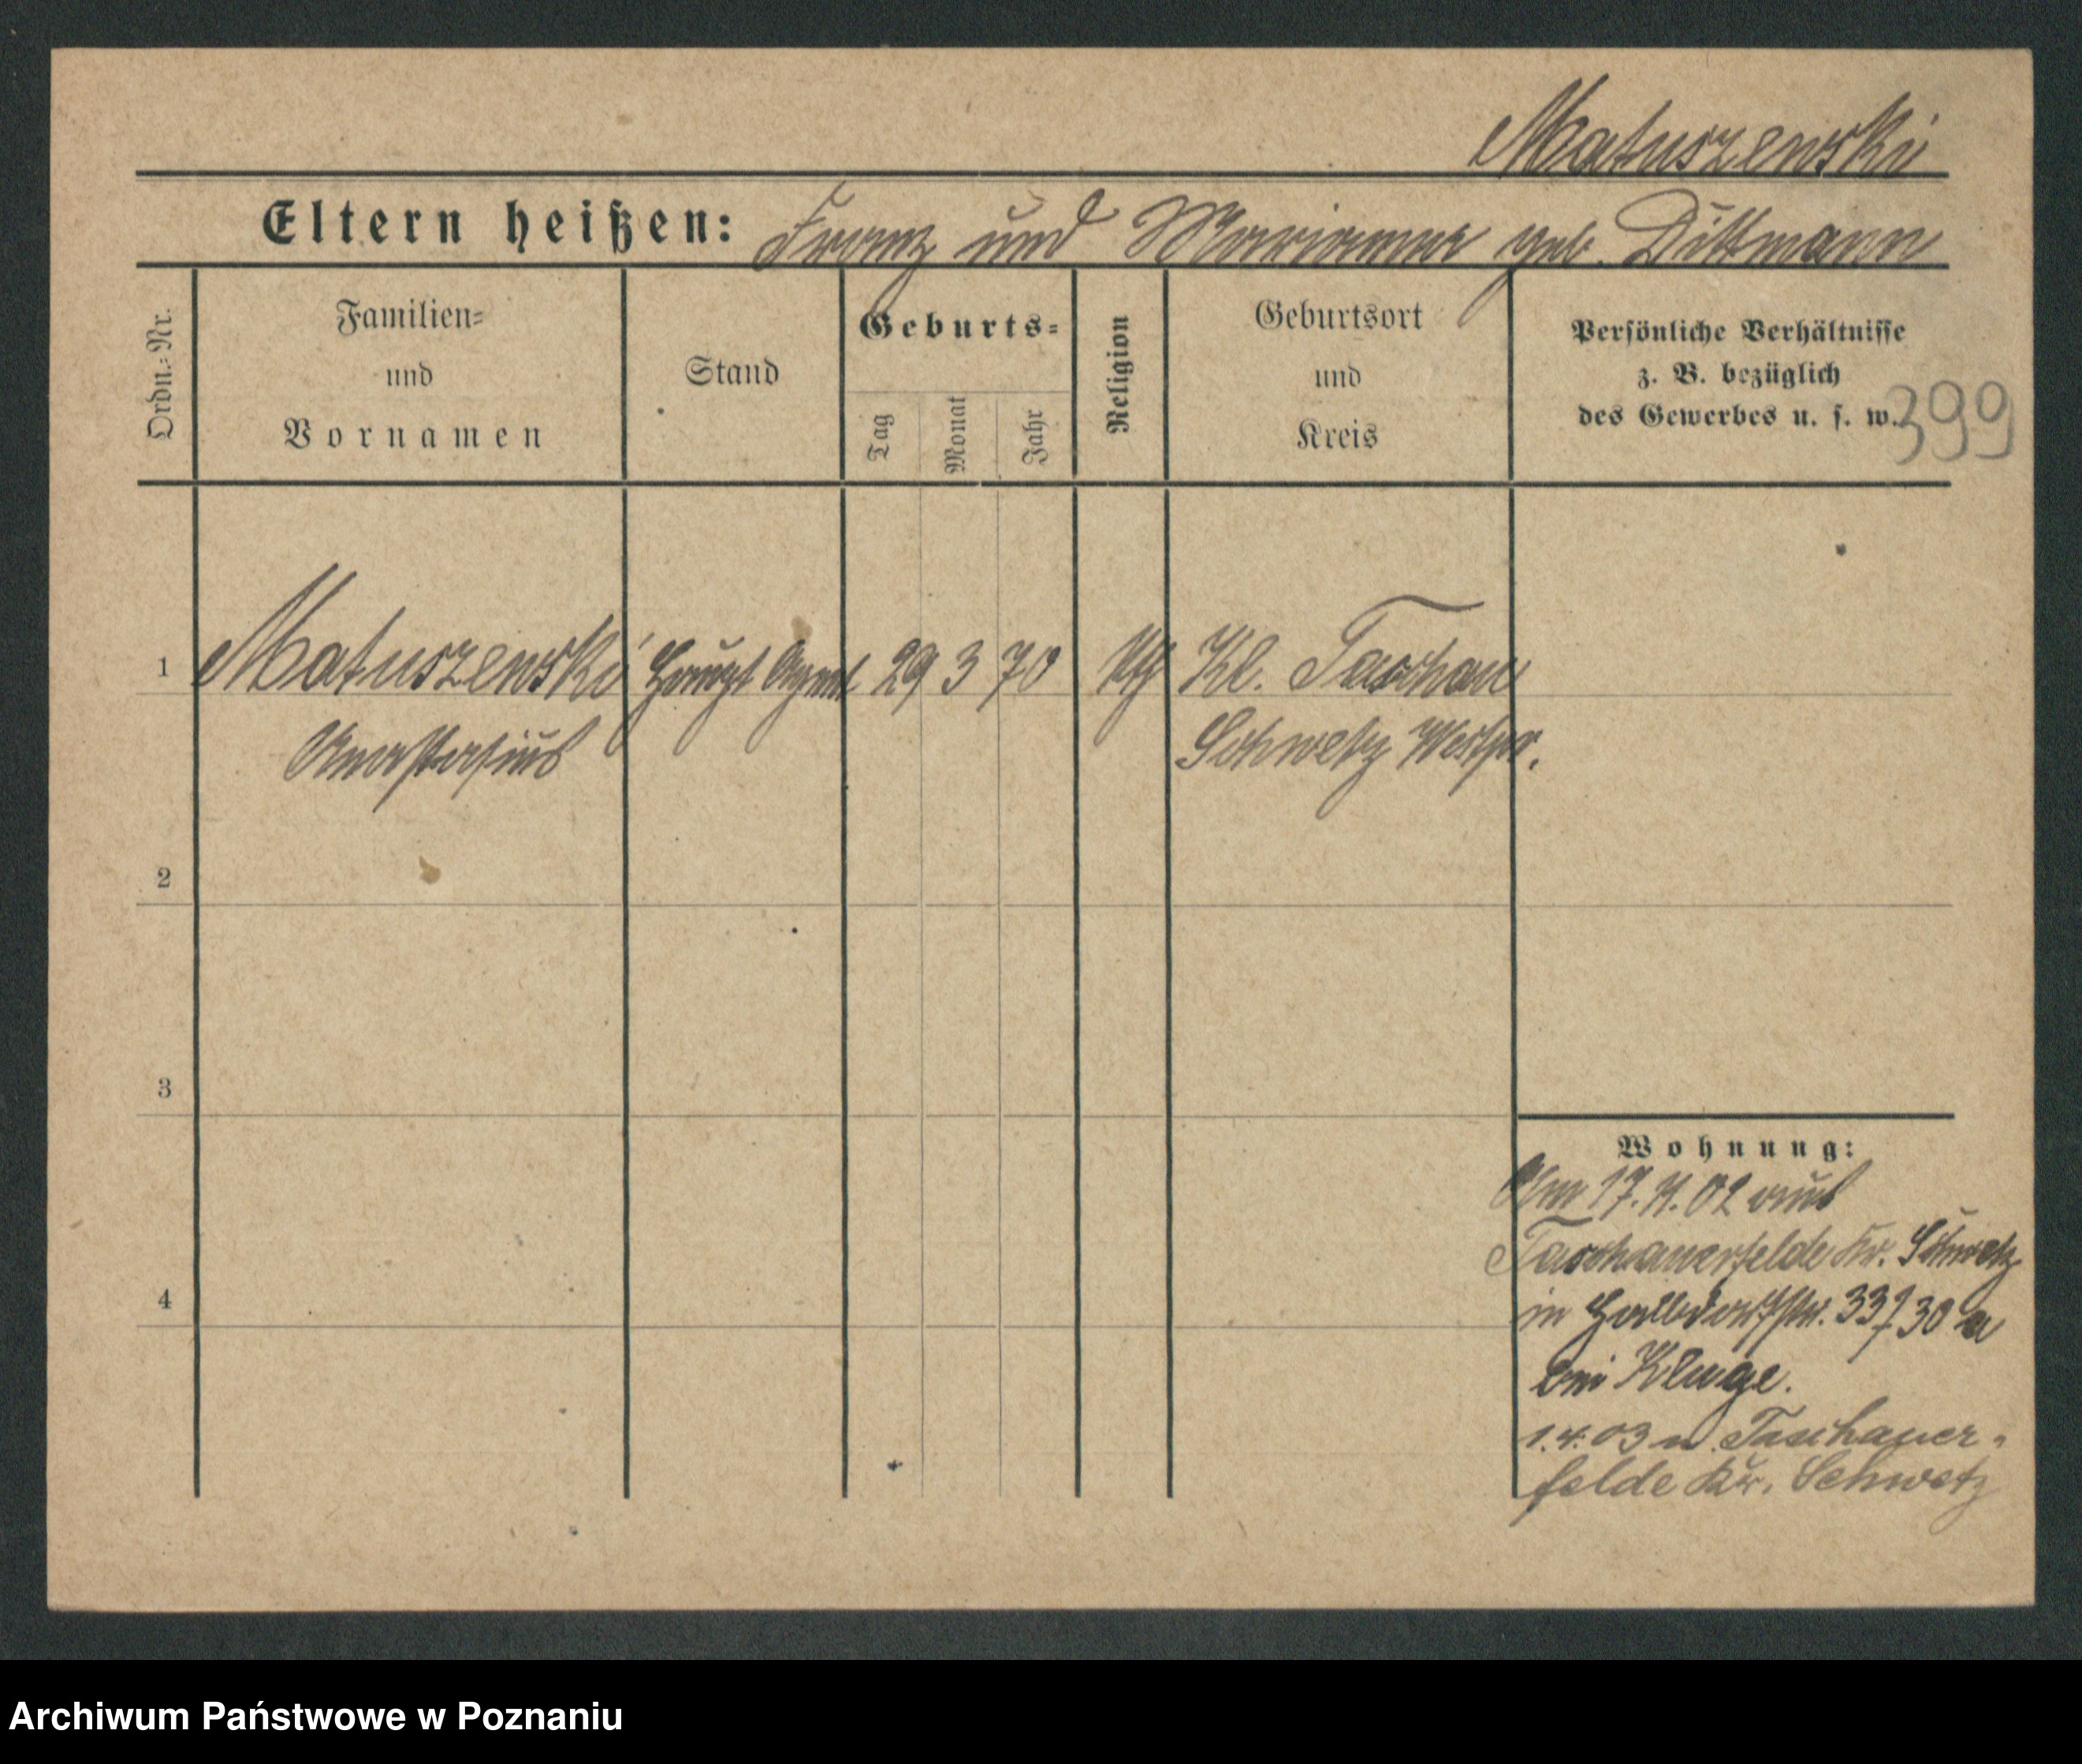 Matuszewski
Eltern heißen: Franz und Marianna geb. Dittmann
Ordn.-Nr.
Familien-
und
Vornamen
Stand
Geburts-
Tag
Monat
Jahr
Religion
Geburtsort
und
Kreis
Persönliche Verhältnisse
z. B. bezüglich
des Gewerbes u. s. w.
399
1 Matuszewski Haupt Agent 29 3 70 kth Kl. Taschau
Anastasius Schwetz Westpr.
2
3
4
Wohnung:
Am 17. 11. 02 aus
Taschauerfelde Kr. Schwetz
in Halbdorfstr. 33/30 a
bei Kluge.
1.4.03 n. Taschauer-
felde Kr. Schwetz
Archiwum Państwowe w Poznaniu